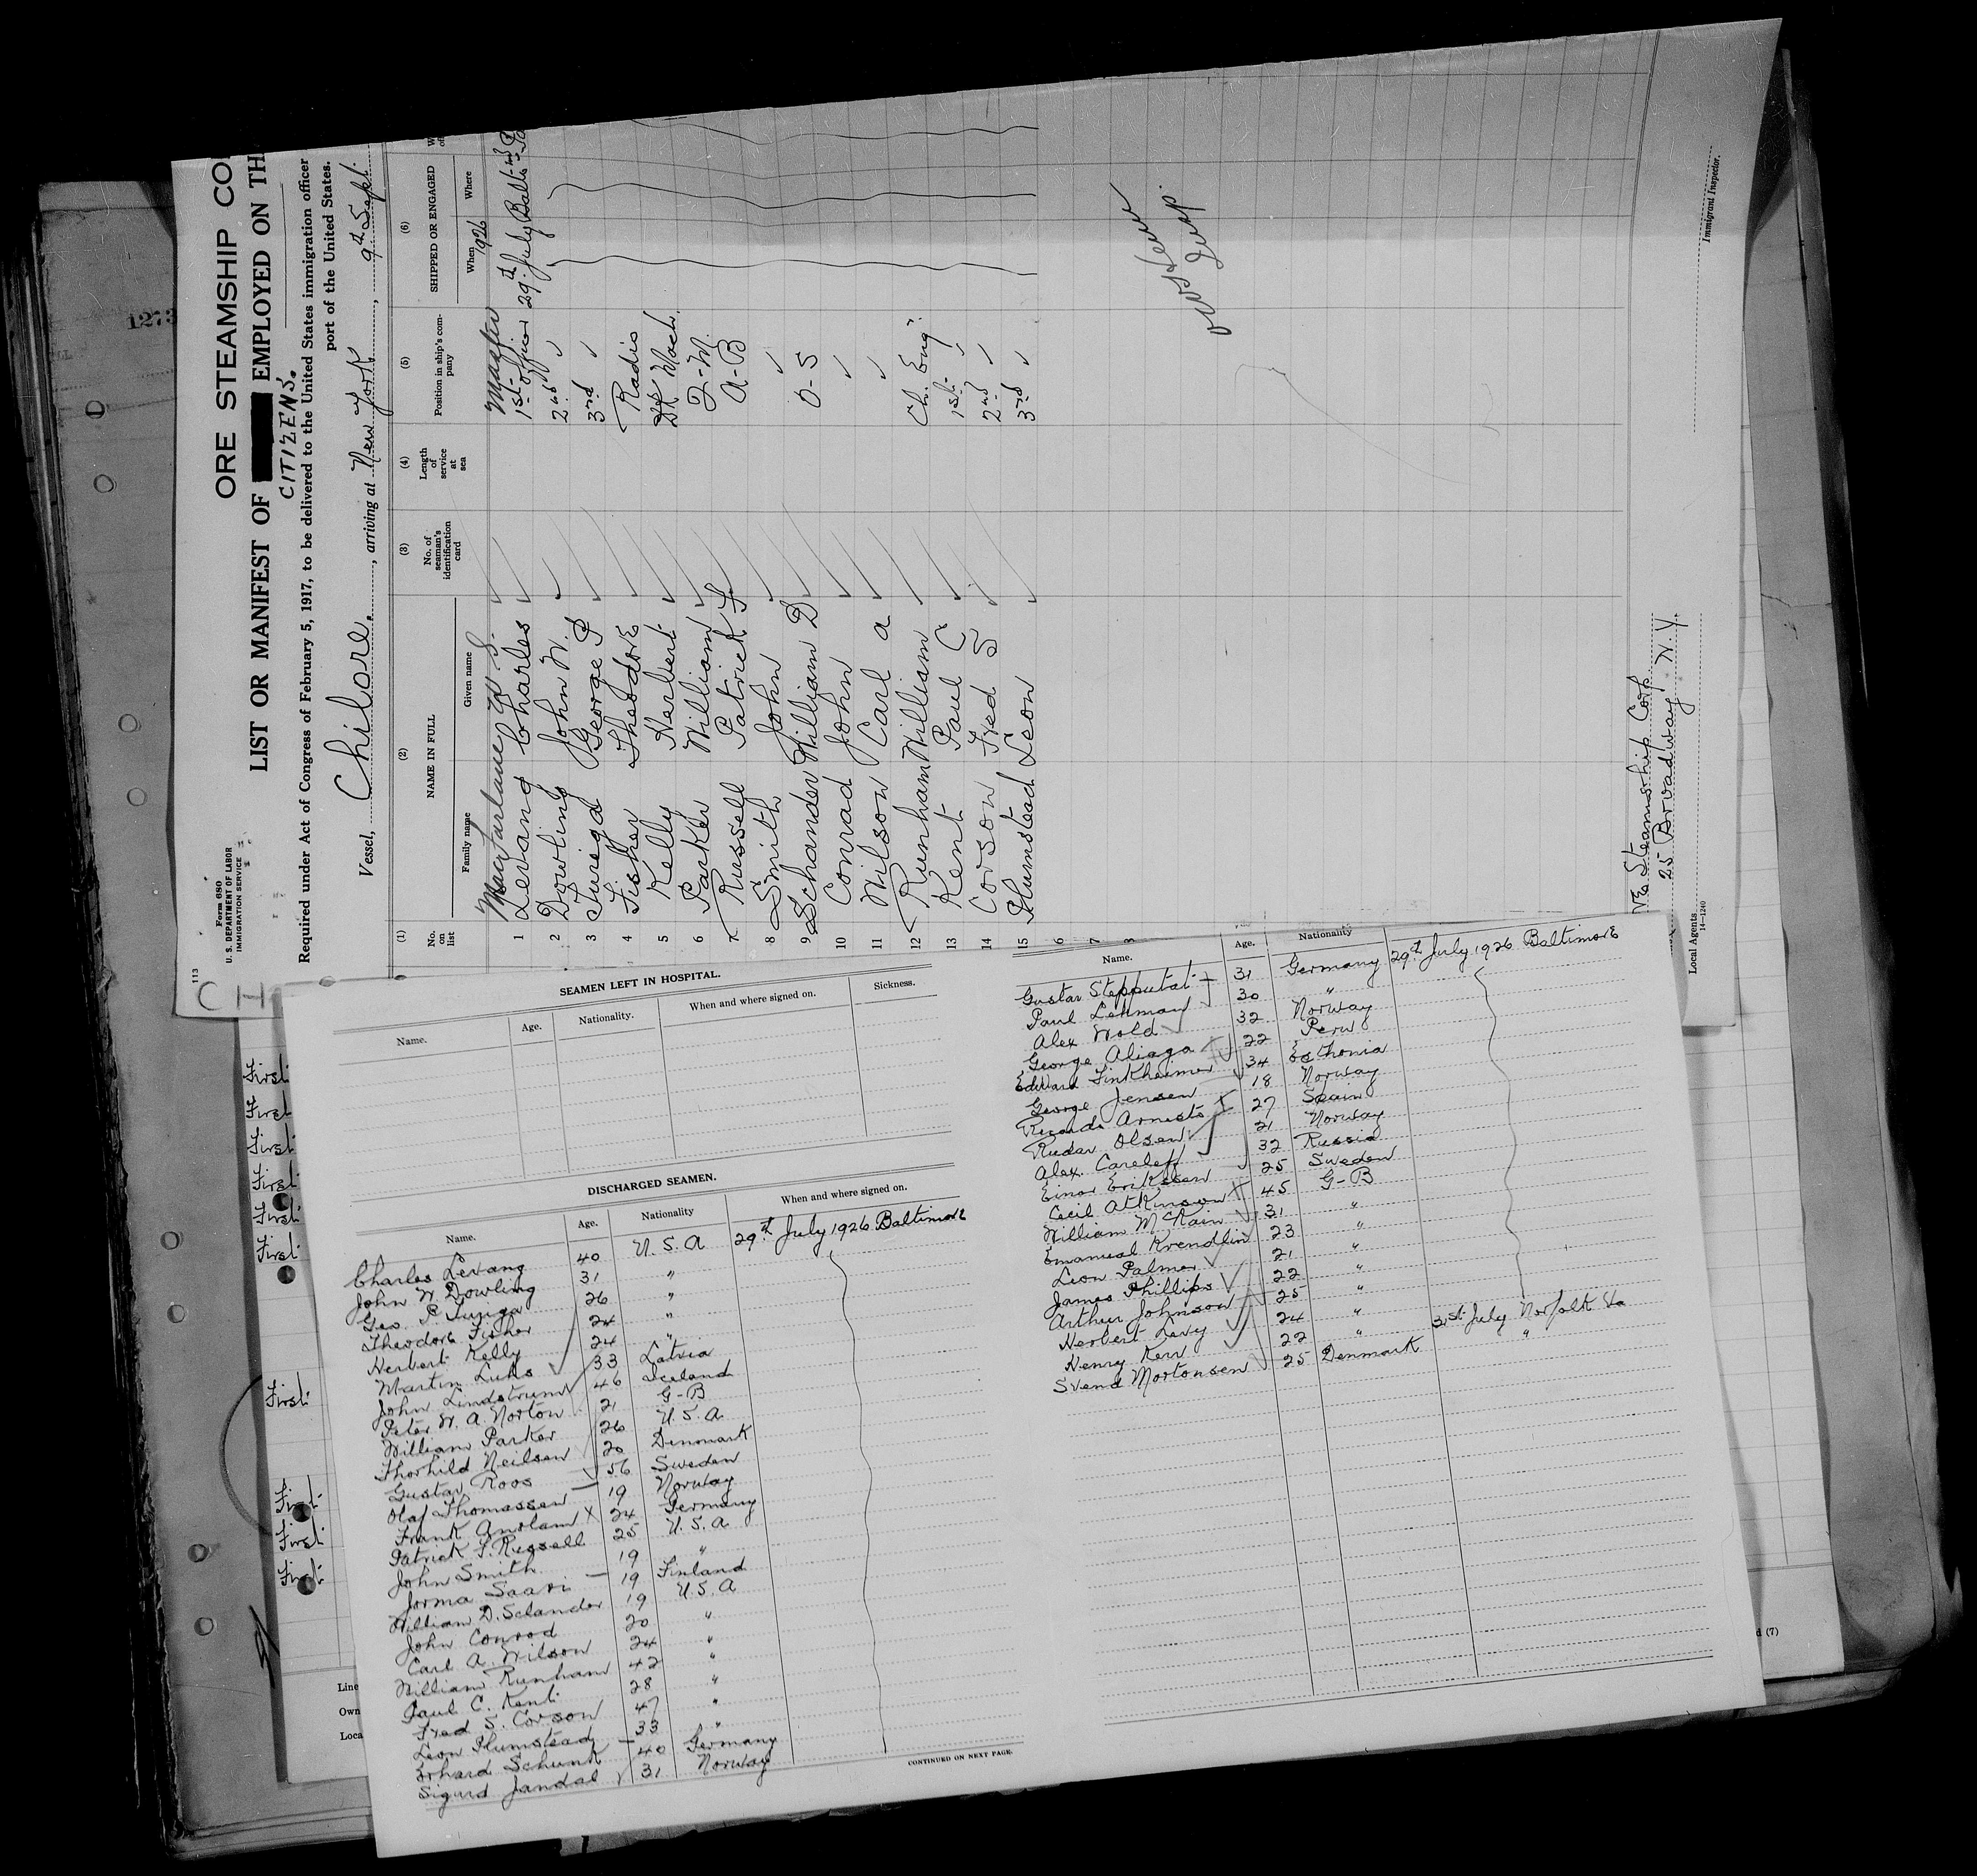 ORE STEAMSHIP CO
LIST OR MANIFEST OF EMPLOYED ON TH
CITIZENS.
Required under Act of Congress of February 5, 1917, to be delivered to the United States immigration officer
port of the United States.
Vessel, Chilore., arriving at New York, 9th Sept.
113
Form 680
U. S. DEPARTMENT OF LABOR
IMMIGRATION SERVICE
CH
(1) (2) (3) (4) (5) (6)
No. on list
NAME IN FULL
Family name Given name
No. of seaman's identification card
Length of service at sea
Position in ship's company
SHIPPED OR ENGAGED
When Where
1926
Master
1 Levang Charles 1st officer 29th July Balto Md
2 Dowling John W. 2nd "
3 George P 3rd "
4 Fisher Theodore Radio
5 Kelly Herbert Dk Mach.
6 Parker William Q-M.
7 Russell Patrick F A-B
8 Smith John "
9 Schander William D O-S
10 Conrad John "
11 Wilson Carl A "
12 Runham William Ch. Eng'r
13 Kent Paul C 1st "
14 Corson Fred S 2nd "
15 Plumstead Leon 3rd "
6
7
8
Immigrant Inspector.
Steamship Corp
25 Broadway N.Y.
Local Agents
14-1240
1273
First
First
First
First
First
First
First
First
First
First
Line
Own
Loca
d (7)
SEAMEN LEFT IN HOSPITAL.
Name. Age. Nationality. When and where signed on. Sickness.
DISCHARGED SEAMEN.
Name. Age. Nationality When and where signed on.
Charles Levang 40 U.S.A 29th July 1926 Baltimore
John W Dowling 31 "
Geo. P. 26 "
Theodore Fisher 24 "
Herbert Kelly 24 "
Martin Luks 33 Latvia
John Lindstrum 46 Iceland
Peter W. A. Norton 21 G-B
William Parker 26 U.S.A
Thorhild Neilsen 20 Denmark
Gustav Roos 56 Sweden
Olaf Thomassen 19 Norway
Frank 24 Germany
Patrick F. Russell 25 U.S.A
John Smith 19 "
Jorma Saari 19 Finland
William D. Sclander 19 U.S.A
John Conrod 20 "
Carl A. Wilson 24 "
William Runham 42 "
Paul C. Kent 28 "
Fred S. Corson 47 "
Leon Plumstead 33 "
Erhard Schunk 40 Germany
Sigurd Jandal 31 Norway
CONTINUED ON NEXT PAGE.
Name. Age. Nationality
Gustav Stepputat 31 Germany 29th July 1926 Baltimore
Paul Lehman 30 "
Alex Wold 32 Norway
George Aliaga 22 Peru
Edward Finkheimer 34 Esthonia
George Jensen 18 Norway
Ricardo Arnesto 27 Spain
Rudar Olsen 21 Norway
Alex. Careleff 32 Russia
Einar Eriksson 25 Sweden
Cecil Atkinson 45 G-B
William McKain 31 "
Emanual Krendlin 23 "
Leon Palmer 21 "
James Phillips 22 "
Arthur Johnson 25 "
Herbert Levy 24 " 31st July Norfolk Va
Henry Kerr 22 " "
Svend Mortonsen 25 Denmark